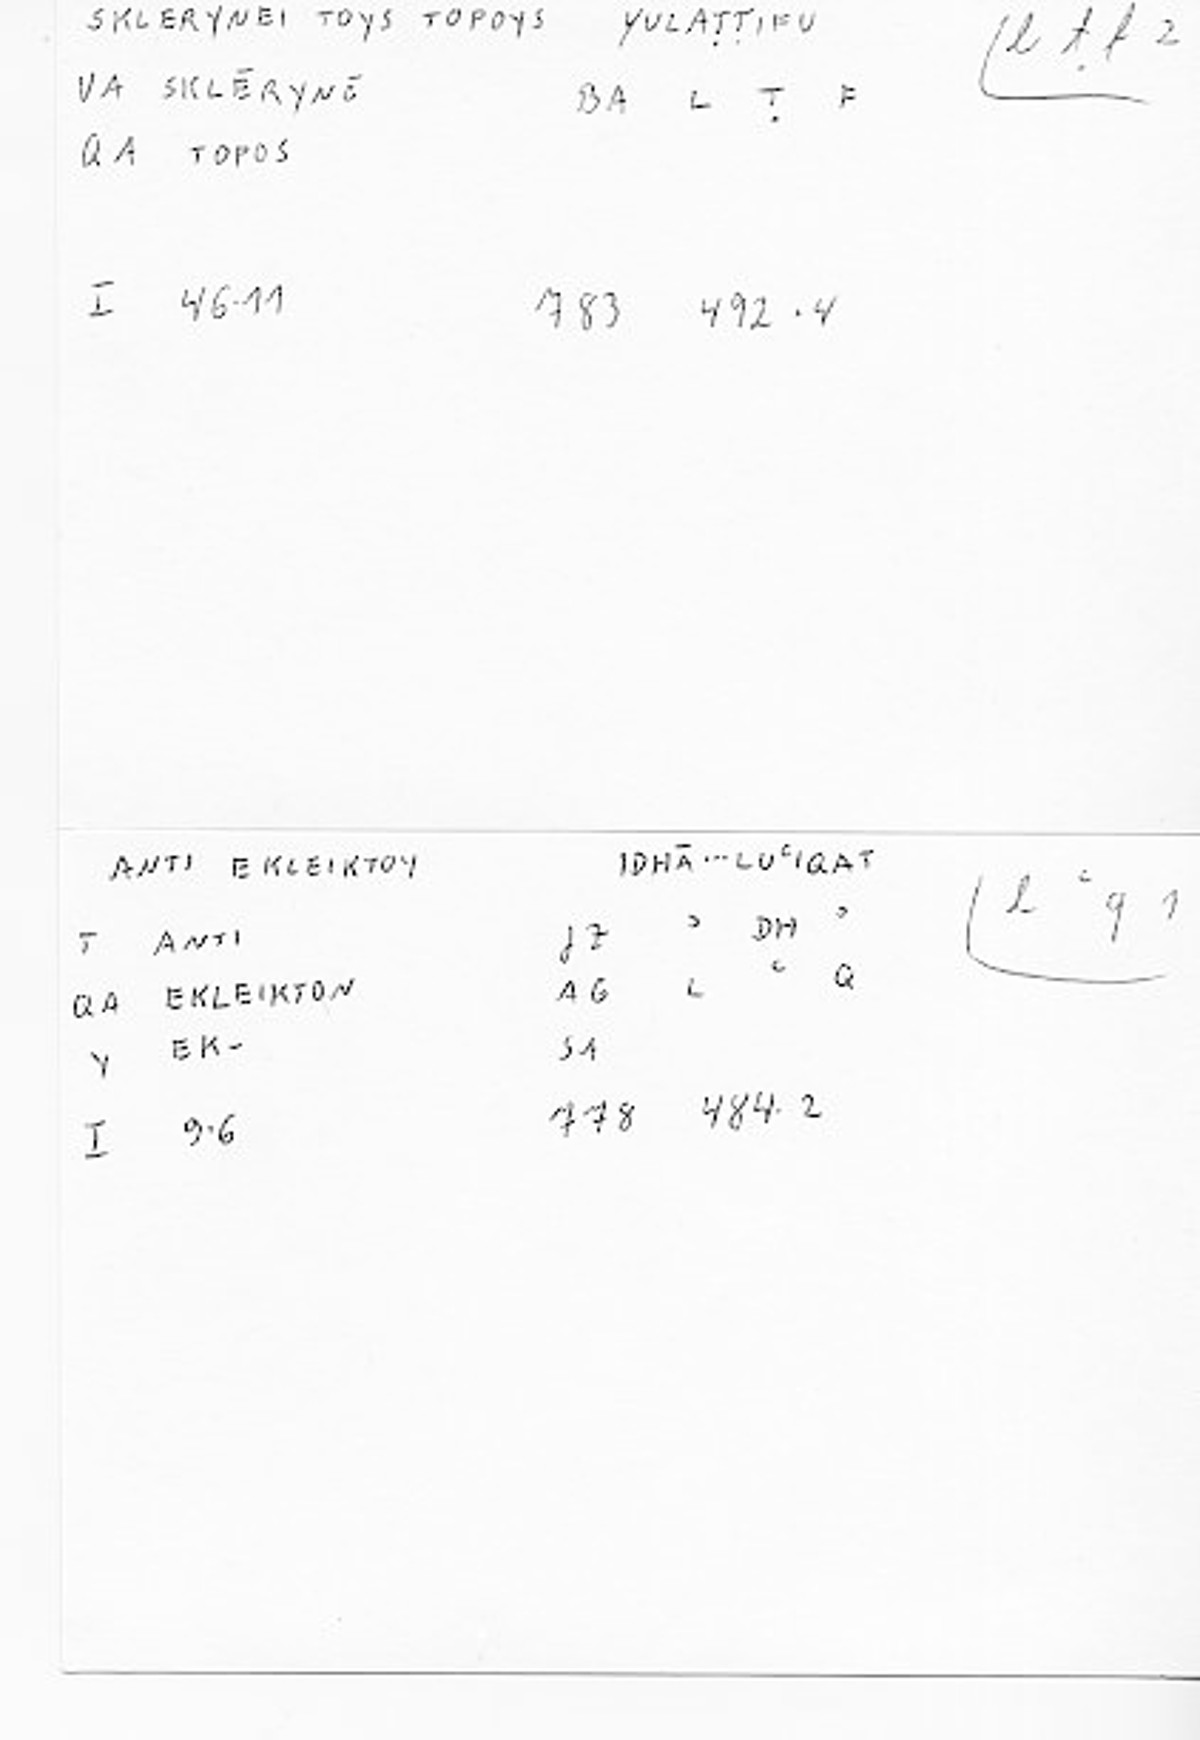 SKLERYNEI TOYS TOPOYS YULAṬṬIFU l ṭ f 2
VA SKLĒRYNĒ BA L Ṭ F
QA TOPOS
I 46.11 783 492.4
ANTI EKLEIKTOY IDHĀ...LUʿIQAT l ʿ q 1
T ANTI JZ ʾ DH ʾ
QA EKLEIKTON AG L ʿ Q
Y EK- S1
I 9.6 778 484.2